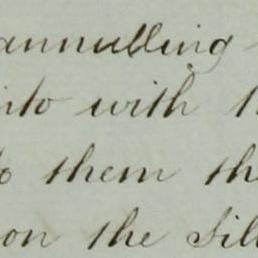 annulling
into with
to them the
on the